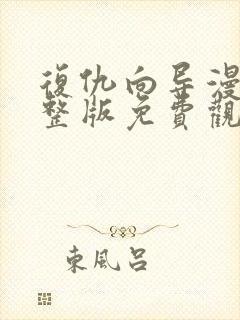 復仇向导漫
整版免費觀
東風呂